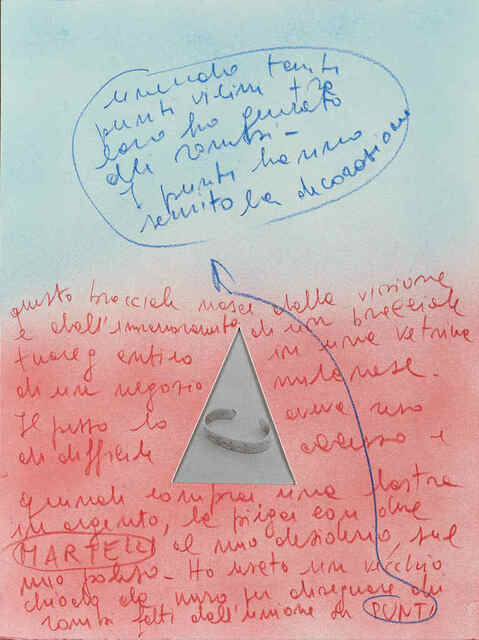 unendo tanti
punti vicini tra
loro ho generato
dei rombi -
i punti hanno
seguito la decorazione
questo bracciale nasce dalla visione
e dall'innamoramento di un bracciale
tuareg antico in una vetrina
di un negozio milanese.
Il prezzo lo aveva reso
di difficile accesso e
quindi comprai una lastra
in argento, la piegai con due
MARTELLI al mio desiderio, sul
mio polso - Ho usato un vecchio
chiodo da muro per disegnare dei
rombi fatti dall'unione di PUNTI